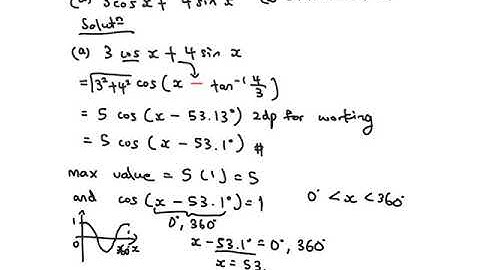 (a) 3 cos x + 4 sin x
Solutⁿ
(a) 3 cos x + 4 sin x
= √3²+4² cos (x − tan⁻¹ 4/3)
= 5 cos (x − 53.13°) 2dp for working
= 5 cos (x − 53.1°) #
max value = 5 (1) = 5
and cos (x − 53.1°) = 1 0° < x < 360°
0°, 360°
1
0
360° x
x − 53.1° = 0°, 360°
x = 53.